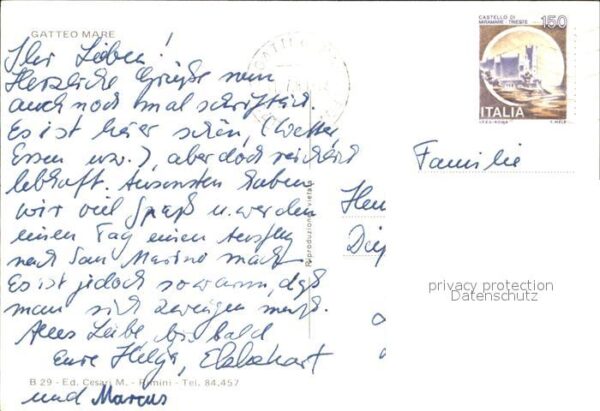 GATTEO MARE
Ihr Lieben!
Herzliche Grüße nun
auch noch mal schriftlich.
Es ist hier schön, (Wetter,
Essen usw.), aber doch reichlich
lebhaft. Ansonsten haben
wir viel Spaß u. werden
einen Tag einen Ausflug
nach San Marino mach
Es ist jedoch so warm, daß
man sich zwingen muß.
Alles Liebe, bis bald
Eure Helga, Ekkehart
und Marcus
B 29 - Ed. Cesari M. - Rimini - Tel. 84.457
Riproduzione vietata
CASTELLO DI
MIRAMARE - TRIESTE
150
ITALIA
Familie
Hen
Die
privacy protection
Datenschutz